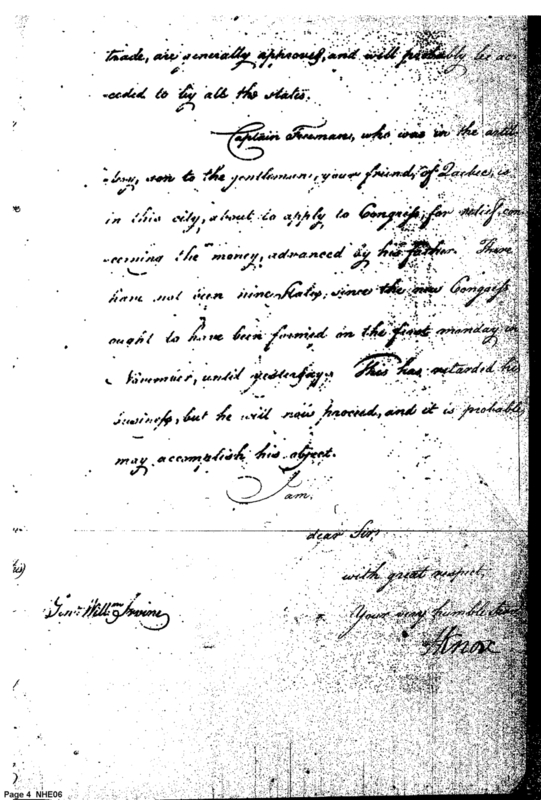 trade, are generally approved, and will probably be ac-
-ceeded to by all the states.
Captain Freeman, who was in the artil-
-lery, son to the gentleman, your friend, of Quebec, is
in this city, about to apply to Congress, for relief, con-
-cerning the money, advanced by his father. There
have not been nine States, since the new Congress
ought to have been formed on the first monday in
November, until yesterday. This has retarded his
business, but he will now proceed, and it is probable
may accomplish his object.
I am.
dear Sir,
with great respect,
Your very humble
Genl. Willm Irvine
HKnox
Page 4 NHE06